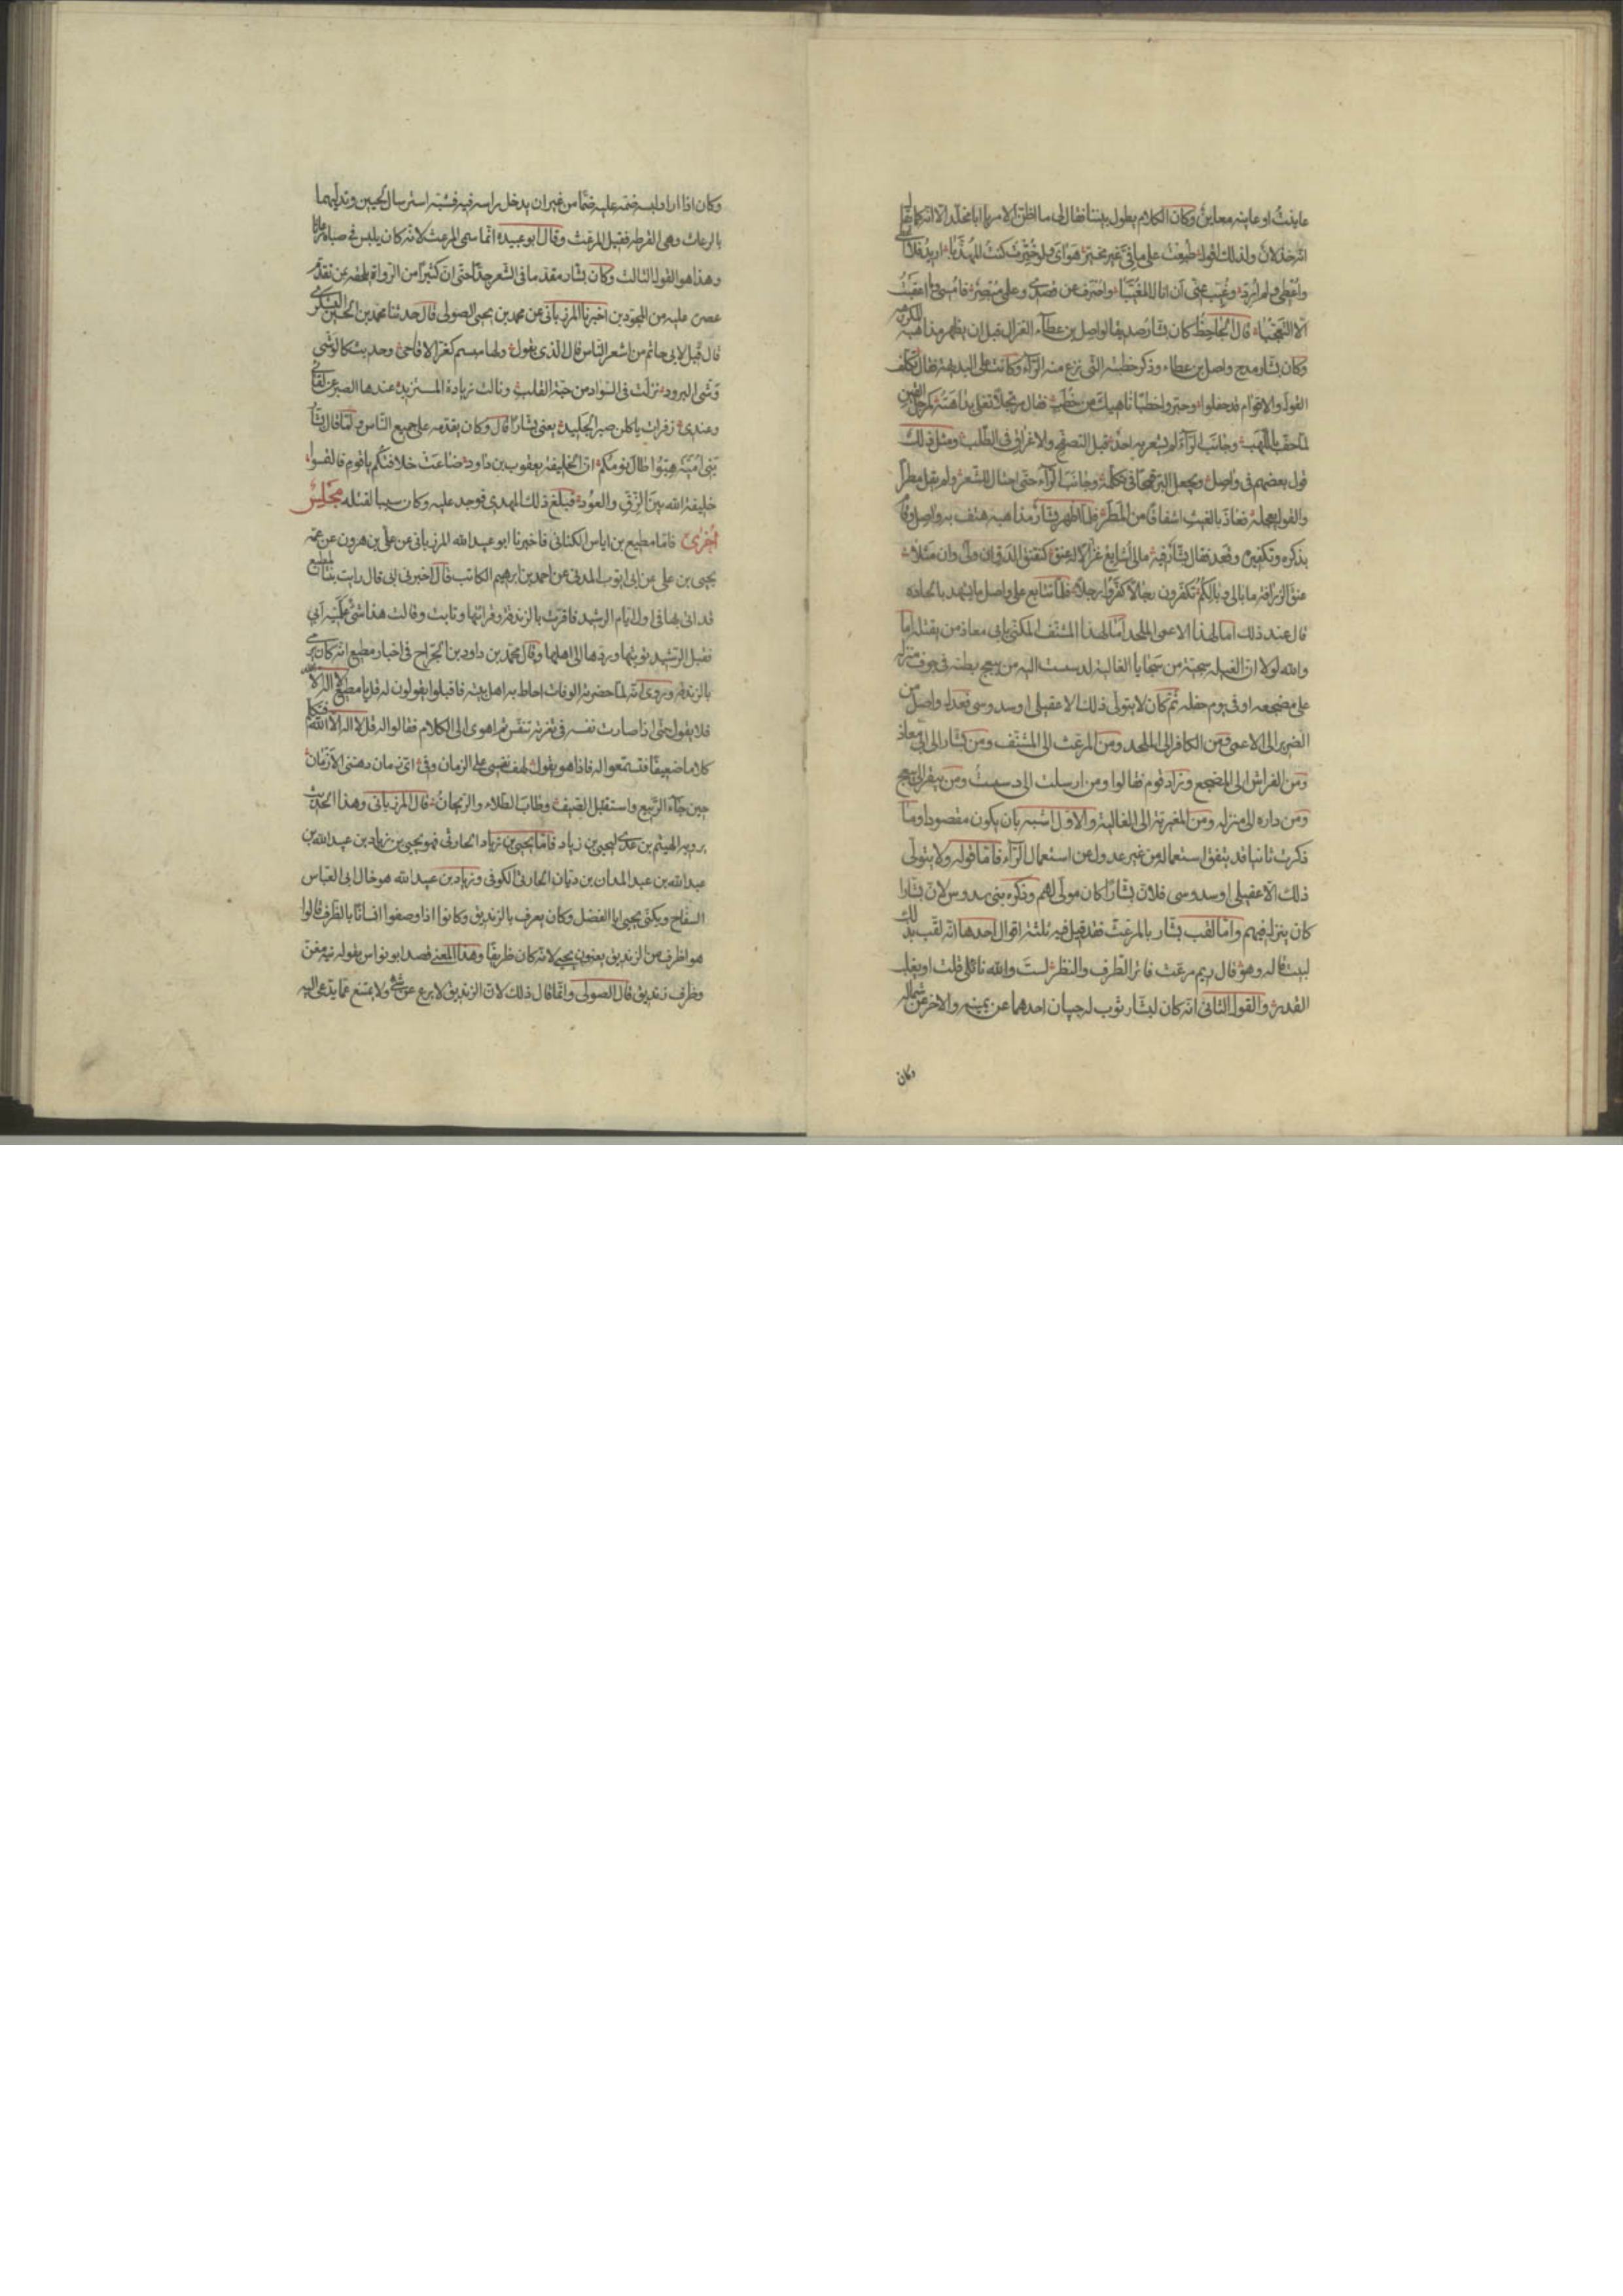 عاينتُ او عاينه معاين وكان الكلام يطول بيننا فقال لى ما اظنّ الامر يا ابا مخلد الا انه كما يقال
انه خذلان ولذلك اقول طبعت على ما فىّ غير مخيّر هواى ولو خيّرت كنت المهذّبا اريد فلا
واُعطى ولم اُرِد وغُيّب عنى أن انال المغيّبا واصرف عن قصدى وعلمى مبصر فامسى وما اعقبتُ
الا التعجّبا قال الجاحظ كان بشار صديقا لواصل بن عطاء الغزال قبل ان يظهر مذاهبه
وكان بشار مدح واصل بن عطاء وذكر خطبته التى نزع منه الراء وكانت على البديهة فقال تكلف
القول والاقوام قد حفلوا وحبّروا خطبًا ناهيك من خُطَب فقال مرتجلًا تغلى بداهته كمرجل القين
لما حفّ باللهب وجانب الراء لم يشعر به احد قبل التصفّح والاغراق فى الطلب ومثل ذلك
قول بعضهم فى واصل ويجعل البرّ قمحًا فى تكلمه وجانب الراء حتى احتال للشعر ولم يقل مطرًا
والقول يعجله فعاذ بالغيث اشفاقًا من المطر فلما اظهر بشار مذاهبه هتف به واصل وقام
بذكره وتكفيره وقعد فقال بشار فيه مالى اشايع غزالا له عنق كنقنق الدوّ ان ولّى وان مثلا
عنق الزرافة ما بالى وبالكم تكفّرون رجالا كفّروا رجلا فلما تتابع على واصل ما يشهد بالحاده
قال عند ذلك اما لهذا الاعمى الملحد اما لهذا المشنّف المكنّى بابى معاذ من يقتله اما
والله لولا ان الغيلة سجيّة من سجايا الغالية لدسست اليه من يبعج بطنه فى جوف منزله
على مضجعه او فى يوم حفله ثم كان لا يتولى ذلك الا عقيلى او سدوسى فعدل واصل من
الضرير الى الاعمى ومن الكافر الى الملحد ومن المرعث الى المشنّف ومن بشار الى ابى معاذ
ومن الفراش الى المضجع وزاد قوم فقالوا ومن ارسلت الى دسست ومن يبقر الى يبعج
ومن داره الى منزله ومن المغيرية الى الغالية والاول اشبه بان يكون مقصودا وما
ذكرت ثانيا قد يتفق استعماله من غير عدول عن استعمال الراء فاما قوله ولا يتولى
ذلك الا عقيلى او سدوسى فلان بشارًا كان مولى لهم وذكره بنى سدوس لان بشارا
كان ينزل فيهم واما لقب بشار بالمرعّث فقد قيل فيه ثلثة اقوال احدها انه لقب بذلك
لبيت قاله وهو قال ريم مرعّث فاتر الطرف والنظر لستَ والله نائلى قلت او يغلب
القدر والقول الثانى انه كان لبشار ثوب له جيبان احدهما عن يمينه والآخر عن شماله
وكان
وكان اذا اراد لبسه ضمّه عليه ضمًّا من غير ان يدخل راسه فيه فشبّه استرسال الجيبين وتدلّيهما
بالرعاث وهى القرطه فقيل المرعّث وقال ابو عبيده انما سمى المرعّث لانه كان يلبس فى صباه رعاثا
وهذا هو القول الثالث وكان بشار مقدما فى الشعر جدّا حتى ان كثيرًا من الرواة يلحقه عن تقدّم
عصره عليه من المجوّدين اخبرنا المرزبانى عن محمد بن يحيى الصولى قال حدثنا محمد بن الحسن اليشكرى
قال قيل لابى حاتم من اشعر الناس قال الذى يقول ولها مبسم كغرّ الاقاحى وحديث كالوشى
وشى البرود نزلت فى السواد من حبّة القلب ونالت زيادة المستزيد عندها الصبر عن لقائى
وعندى زفرات ياكلن صبر الجليد يعنى بشارًا قال وكان يقدمه على جميع الناس ولما قال بشار
بنى اُميّة هبّوا طال نومكم ان الخليفة يعقوب بن داود ضاعت خلافتكم يا قوم فالتمسوا
خليفة الله بين الزقّ والعود فبلغ ذلك المهدى فوجد عليه وكان سببا لقتله مجلس
اُخرى فاما مطيع بن اياس الكنانى فاخبرنا ابو عبيد الله المرزبانى عن على بن هرون عن عمه
يحيى بن على عن ابى ايوب المدنى عن احمد بن ابرهيم الكاتب قال اخبرنى ابى قال رايت بنتا لمطيع
قد اتى بها فى اول ايام الرشيد فاقرّت بالزندقة وقراتها وتابت وقالت هذا شئ علّمنيه ابى
فقبل الرشيد توبتها وردها الى اهلها وقال محمد بن داود بن الجراح فى اخبار مطيع انه كان يرمى
بالزندقة وروى انه لما حضرته الوفاة احاط به اهل بيته فاقبلوا يقولون له قل يا مطيع لا اله الا الله
فلا يقول حتى اذا صارت نفسه فى ثغرته تنفّس ثم اهوى الى الكلام فقالوا له قل لا اله الا الله فتكلم
كلاما ضعيفًا فتسمّعوا له فاذا هو يقول لهف نفسى على الزمان وفى اىّ زمان دهتنى الازمان
حين جاء الربيع واستقبل الصيف وطاب الطلاء والريحان قال المرزبانى وهذا الحديث
يرويه الهيثم بن عدى ليحيى بن زياد فاما يحيى بن زياد الحارثى فهو يحيى بن زياد بن عبيد الله بن
عبد الله بن عبد المدان بن ديّان الحارثى الكوفى وزياد بن عبيد الله هو خال ابى العباس
السفاح ويكنى يحيى ابا الفضل وكان يعرف بالزنديق وكانوا اذا وصفوا انسانا بالظرف قالوا
هو اظرف من الزنديق يعنون يحيى لانه كان ظريفًا وهذا المعنى قصد ابو نواس بقوله تيه مغنّ
وظرف زنديق قال الصولى وانما قال ذلك لان الزنديق لا يرع عن شئ ولا يمتنع عما يدعى اليه